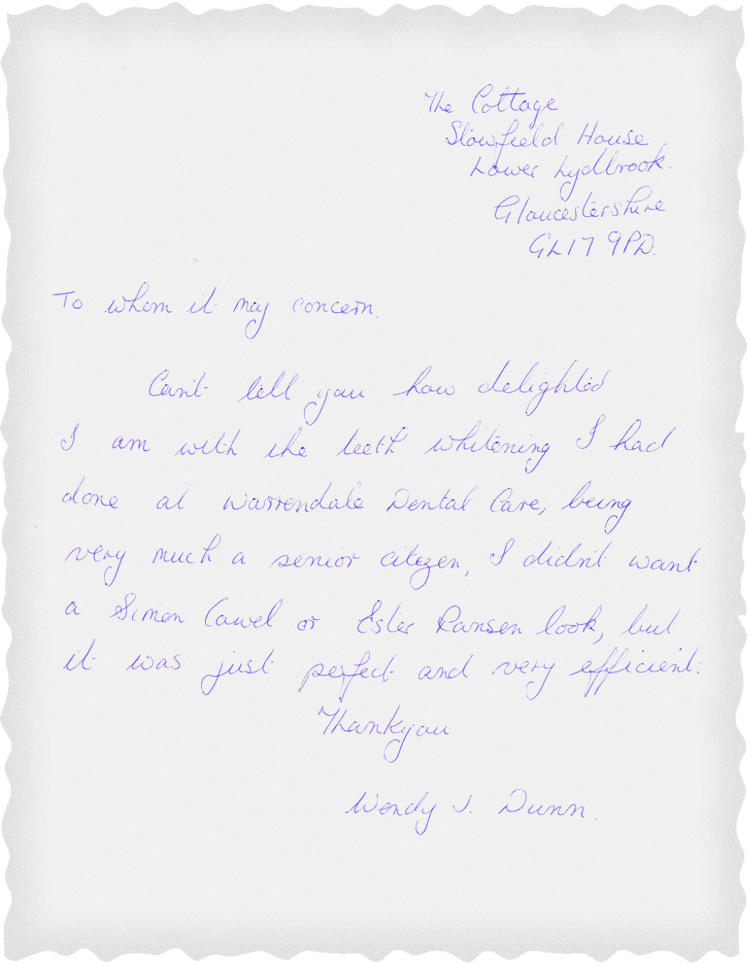 The Cottage
Slowfield House
Lower Lydbrook.
Gloucestershire
GL17 9PD.
To whom it may concern.
Can't tell you how delighted
I am with the teeth whitening I had
done at Warrendale Dental Care, being
very much a senior citizen, I didn't want
a Simon Cawel or Ester Ransen look, but
it was just perfect and very efficient.
Thankyou
Wendy J. Dunn.